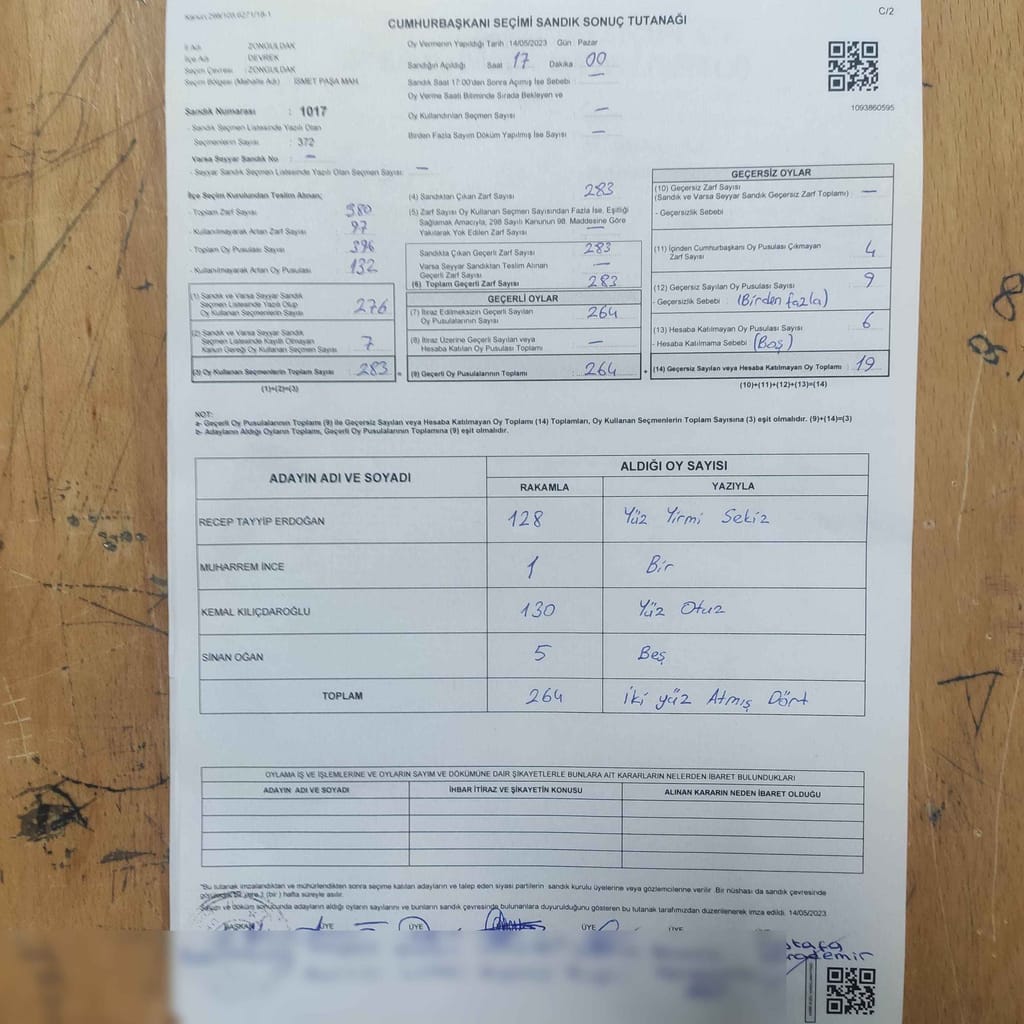 C/2
CUMHURBAŞKANI SEÇİMİ SANDIK SONUÇ TUTANAĞI
İl Adı : ZONGULDAK
İlçe Adı : DEVREK
Seçim Çevresi : ZONGULDAK
Seçim Bölgesi (Mahalle Adı) : İSMET PAŞA MAH.
Sandık Numarası : 1017
- Sandık Seçmen Listesinde Yazılı Olan
Seçmenlerin Sayısı : 372
Varsa Seyyar Sandık No : —
- Seyyar Sandık Seçmen Listesinde Yazılı Olan Seçmen Sayısı: —
Oy Vermenin Yapıldığı Tarih :14/05/2023 Gün : Pazar
Sandığın Açıldığı Saat : 17 Dakika 00
Sandık Saat 17:00'den Sonra Açımış İse Sebebi : —
Oy Verme Saati Bitiminde Sırada Bekleyen ve
Oy Kullandırılan Seçmen Sayısı —
Birden Fazla Sayım Döküm Yapılmış İse Sayısı —
1093860595
İlçe Seçim Kurulundan Teslim Alınan;
- Toplam Zarf Sayısı 380
- Kullanılmayarak Artan Zarf Sayısı 97
- Toplam Oy Pusulası Sayısı 396
- Kullanılmayarak Artan Oy Pusulası 132
(1) Sandık ve Varsa Seyyar Sandık
Seçmen Listesinde Yazılı Olup
Oy Kullanan Seçmenlerin Sayısı 276
(2) Sandık ve Varsa Seyyar Sandık
Seçmen Listesinde Kayıtlı Olmayan
Kanun Gereği Oy Kullanan Seçmen Sayısı 7
(3) Oy Kullanan Seçmenlerin Toplam Sayısı 283
(1)+(2)=(3)
(4) Sandıktan Çıkan Zarf Sayısı 283
(5) Zarf Sayısı Oy Kullanan Seçmen Sayısından Fazla İse, Eşitliği
Sağlamak Amacıyla, 298 Sayılı Kanunun 98. Maddesine Göre
Yakılarak Yok Edilen Zarf Sayısı —
Sandıkta Çıkan Geçerli Zarf Sayısı 283
Varsa Seyyar Sandıktan Teslim Alınan
Geçerli Zarf Sayısı —
(6) Toplam Geçerli Zarf Sayısı 283
GEÇERLİ OYLAR
(7) İtiraz Edilmeksizin Geçerli Sayılan
Oy Pusulalarının Sayısı 264
(8) İtiraz Üzerine Geçerli Sayılan veya
Hesaba Katılan Oy Pusulası Toplamı —
(9) Geçerli Oy Pusulalarının Toplamı 264
GEÇERSİZ OYLAR
(10) Geçersiz Zarf Sayısı
(Sandık ve Varsa Seyyar Sandık Geçersiz Zarf Toplamı) —
- Geçersizlik Sebebi
(11) İçinden Cumhurbaşkanı Oy Pusulası Çıkmayan
Zarf Sayısı 4
(12) Geçersiz Sayılan Oy Pusulası Sayısı 9
- Geçersizlik Sebebi : (Birden fazla)
(13) Hesaba Katılmayan Oy Pusulası Sayısı 6
- Hesaba Katılmama Sebebi (Boş)
(14) Geçersiz Sayılan veya Hesaba Katılmayan Oy Toplamı 19
(10)+(11)+(12)+(13)=(14)
NOT:
a- Geçerli Oy Pusulalarının Toplamı (9) ile Geçersiz Sayılan veya Hesaba Katılmayan Oy Toplamı (14) Toplamları, Oy Kullanan Seçmenlerin Toplam Sayısına (3) eşit olmalıdır. (9)+(14)=(3)
b- Adayların Aldığı Oyların Toplamı, Geçerli Oy Pusulalarının Toplamına (9) eşit olmalıdır.
ADAYIN ADI VE SOYADI
ALDIĞI OY SAYISI
RAKAMLA YAZIYLA
RECEP TAYYİP ERDOĞAN 128 Yüz Yirmi Sekiz
MUHARREM İNCE 1 Bir
KEMAL KILIÇDAROĞLU 130 Yüz Otuz
SİNAN OĞAN 5 Beş
TOPLAM 264 İki yüz Atmış Dört
OYLAMA İŞ VE İŞLEMLERİNE VE OYLARIN SAYIM VE DÖKÜMÜNE DAİR ŞİKAYETLERLE BUNLARA AİT KARARLARIN NELERDEN İBARET BULUNDUKLARI
ADAYIN ADI VE SOYADI İHBAR İTİRAZ VE ŞİKAYETİN KONUSU ALINAN KARARIN NEDEN İBARET OLDUĞU
"Bu tutanak imzalandıktan ve mühürlendikten sonra seçime katılan adayların ve talep eden siyasi partilerin sandık kurulu üyelerine veya gözlemcilerine verilir. Bir nüshası da sandık çevresinde
görülecek bir yere 1 (bir) hafta süreyle asılır.
Sayım ve döküm sonucunda adayların aldığı oyların sayılarını ve bunların sandık çevresinde bulunanlara duyurulduğunu gösteren bu tutanak tarafımızdan düzenlenerek imza edildi. 14/05/2023
BAŞKAN ÜYE ÜYE ÜYE ÜYE